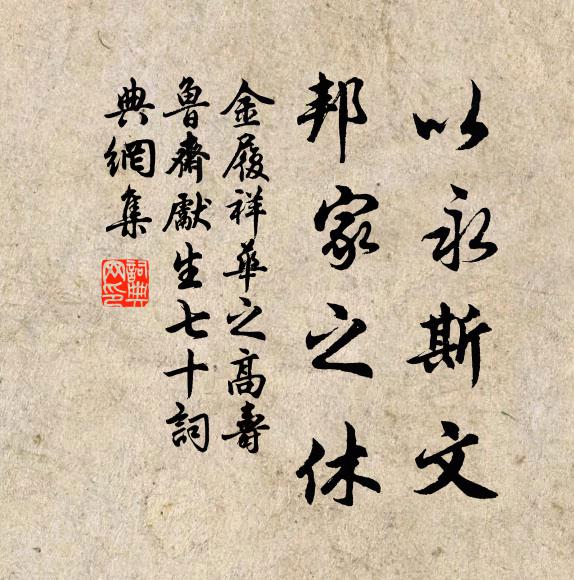 以永斯文
邦家之休
金履祥華之高壽
魯齋獻生七十詞
典網集
詞典网印